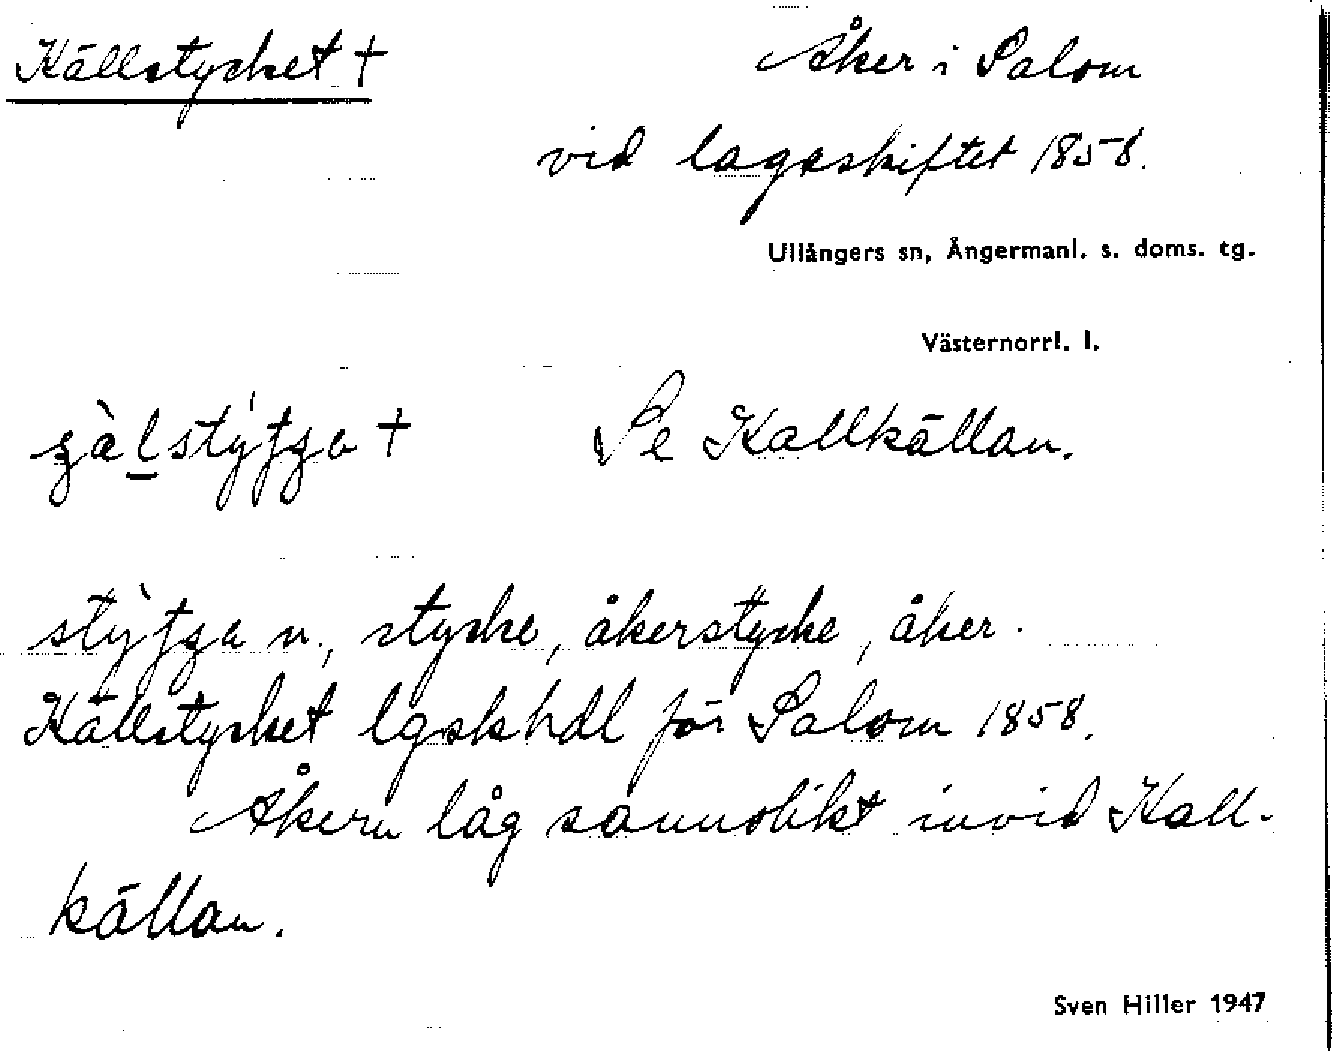 Källstycket †
Åker i Salom
vid lagaskiftet 1858.
Ullångers sn, Ångermanl. s. doms. tg.
Västernorrl. l.
† Se Kallkällan.
n., stycke, åkerstycke, åker.
Källstycket lgskhdl för Salom 1858.
Åkern låg sannolikt invid Kall-
källan.
Sven Hiller 1947